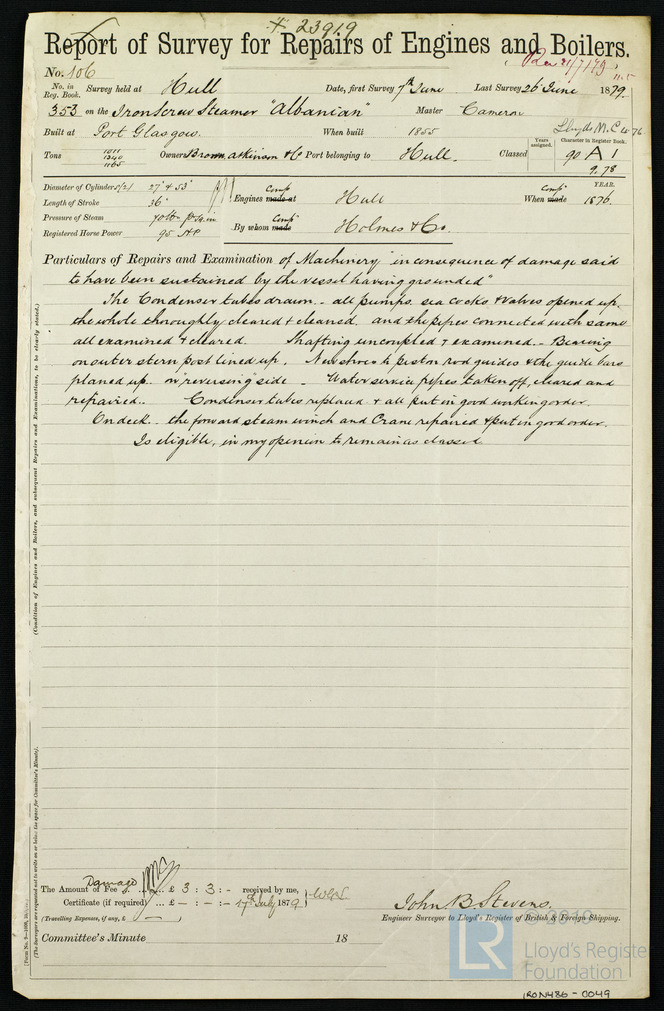 23919
Report of Survey for Repairs of Engines and Boilers.
No. 106
No. in Reg. Book. Survey held at Hull Date, first Survey 7th June Last Survey 26 June 1879.
353 on the Iron Screw Steamer "Albanian" Master Cameron
Lloyds M.C.
Built at Port Glasgow. When built 1855
Years assigned. Character in Register Book.
Tons 1011 1240 1165 Owners Brown, Atkinson & Co Port belonging to Hull. Classed 90 A 1
9.78
Diameter of Cylinders 27" & 53"
Length of Stroke 36"
Pressure of Steam 70 lb pr sq. in
Registered Horse Power 95 H.P
Engines made at Comp Hull When made Comp YEAR. 1876.
By whom made Comp Holmes & Co.
Particulars of Repairs and Examination of Machinery "in consequence of damage said
to have been sustained by the vessel having grounded"
The Condenser tubes drawn. - all pumps, sea cocks & valves opened up.
the whole thoroughly cleared & cleaned. and the pipes connected with same
all examined & cleared. Shafting uncoupled & examined. - Bearing
on outer stern post lined up. New shoes to piston rod guides & the guide bars
planed up. on "reversing" side - Water service pipes taken off, cleared and
repaired.. Condenser tubes replaced & all put in good working order.
On deck. - the forward steam winch and Crane repaired & put in good order.
Is eligible, in my opinion to remain as classed
(Condition of Engines and Boilers, and subsequent Repairs and Examinations, to be clearly stated.)
(The Surveyors are requested not to write on or below the space for Committee's Minute).
Damage
The Amount of Fee .. £ 3 : 3 : - received by me,
Certificate (if required) ... £ - : - : - 17th July 1879
(Travelling Expenses, if any, £ )
John B. Stevens.
Engineer Surveyor to Lloyd's Register of British & Foreign Shipping.
Committee's Minute 18
LR
2019
Lloyd's Registe
Foundation
IRON486-0049